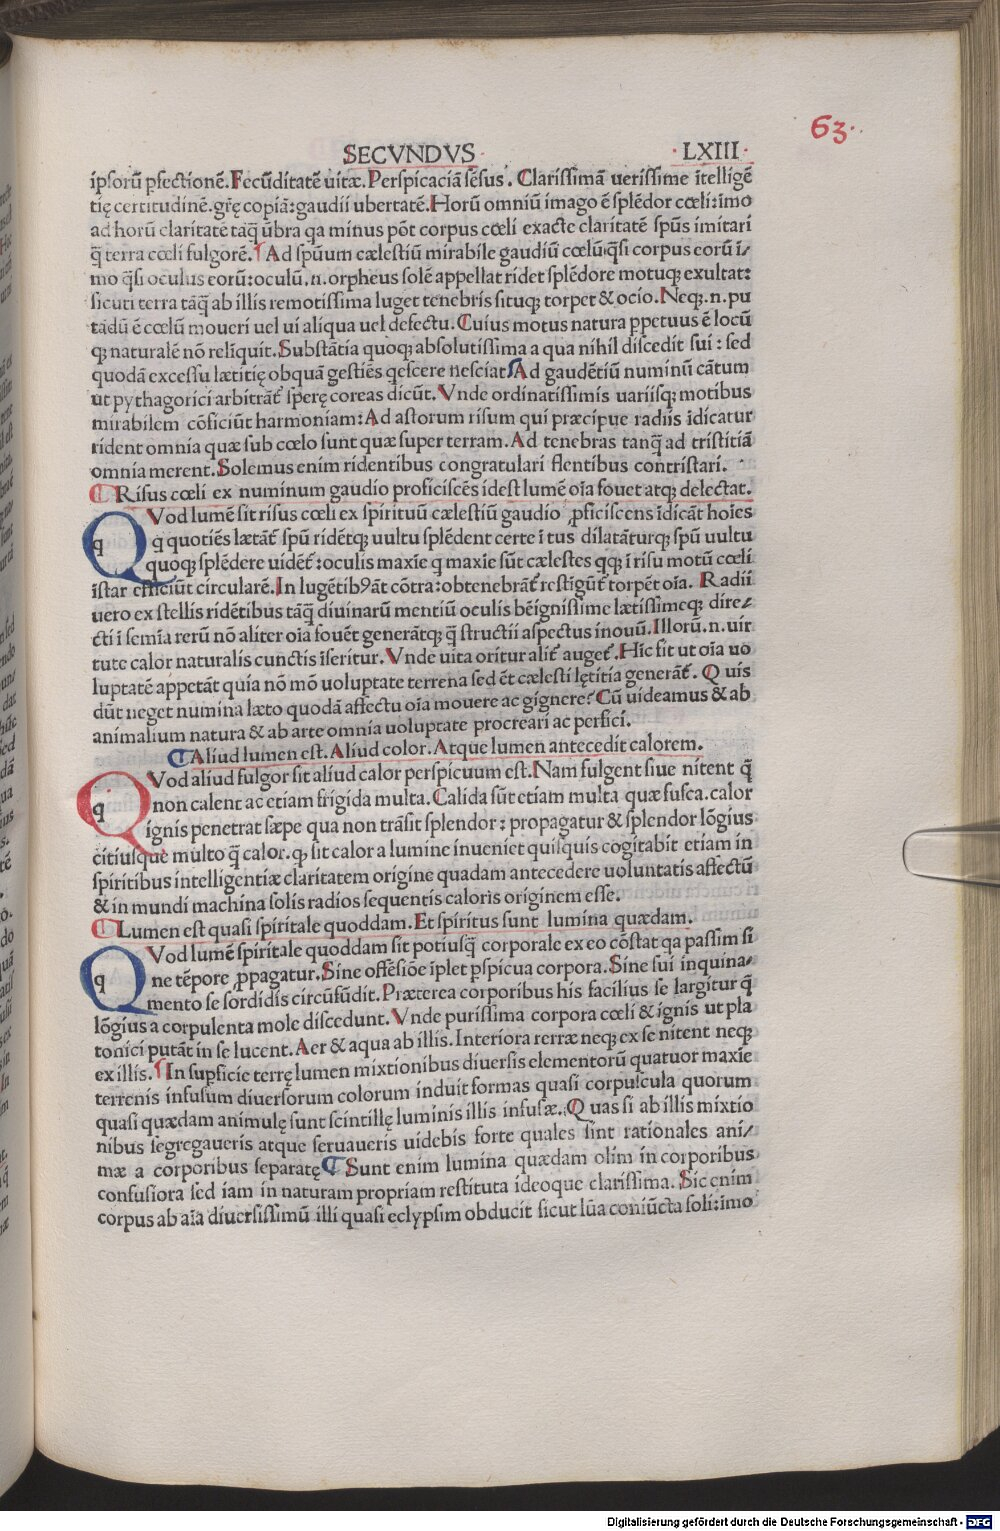 63.
SECVNDVS ·LXIII·
ipsorū ꝑfectionē. Fecūditatē uitæ. Perspicaciā sēsus. Clarissimā uerissime ītelligē
tię certitudinē. grȩ̄ copiā: gaudii ubertatē. Horū omniū imago ē splēdor cœli: imo
ad horū claritatē taq̄ ūbra qa minus pōt corpus cœli exacte claritatē spūs imitari
q̄ terra cœli fulgorē. ¶ Ad spūum cælestiū mirabile gaudiū cœlū, q̄si corpus eorū ī/
mo q̄si oculus eorū: oculū. n. orpheus solē appellat ridet splēdore motuqꝫ exultat:
sicuti terra tāq̄ ab illis remotissima luget tenebris situqꝫ torpet & ocio. Neqꝫ. n. pu
tādū ē cœlū moueri uel ui aliqua uel defectu. Cuius motus natura ꝑpetuus ē locū
qꝫ naturalē nō reliquit. Substātia quoqꝫ absolutissima a qua nihil discedit sui: sed
quodā excessu lætitię obquā gestiēs qescere nesciat ¶ Ad gaudētiū numinū cātum
ut pythagorici arbitrāt᷑ sperę coreas dicūt. Vnde ordinatissimis uariisqꝫ motibus
mirabilem cōficiūt harmoniam: Ad astorum risum qui præcipue radiis īdicatur
rident omnia quæ sub cœlo sunt quæ super terram. Ad tenebras tanq̄ ad tristitiā
omnia merent. Solemus enim ridentibus congratulari flentibus contristari.
¶ Risus cœli ex numinum gaudio proficiscēs idest lumē oīa fouet atqꝫ delectat.
QVod lumē sit risus cœli ex spirituū cælestiū gaudio ꝓficiscens īdicāt hoīes
q quotiēs lætāt᷑ spū ridētqꝫ uultu splēdent certe ī tus dilatāturqꝫ spū uultu
quoqꝫ splēdere uidēt᷑: oculis maxie q maxie sūt cælestes qqꝫ ī risu motū cœli
īstar efficiūt circularē. In lugētibꝰ āt cōtra: obtenebrāt᷑ restigūt᷑ torpēt oīa. Radii
uero ex stellis ridētibus tāq̄ diuinarū mentiū oculis bēignissime lætissimeqꝫ dire/
cti ī semīa rerū nō aliter oīa fouēt generātqꝫ q̄ structii aspectus īnouū. Illorū. n. uir
tute calor naturalis cunctis īseritur. Vnde uita oritur alit᷑ auget᷑. Hic fit ut oīa uo
luptatē appetāt quia nō mō uoluptate terrena sed ēt cælesti lętitia generāt᷑. Quis
dūt neget numina læto quodā affectu oīa mouere ac gignere? Cū uideamus & ab
animalium natura & ab arte omnia uoluptate procreari ac perfici.
¶ Aliud lumen est. Aliud color. Atque lumen antecedit calorem.
QVod aliud fulgor sit aliud calor perspicuum est. Nam fulgent siue nitent q̄
non calent ac etiam frigida multa. Calida sūt etiam multa quæ fusca. calor
ignis penetrat sæpe qua non trāsit splendor: propagatur & splendor lōgius
citiusque multo q̄ calor. qꝫ sit calor a lumine inueniet quisquis cogitabit etiam in
spiritibus intelligentiæ claritatem origine quadam antecedere uoluntatis affectū
& in mundi machina solis radios sequentis caloris originem esse.
¶ Lumen est quasi spiritale quoddam. Et spiritus sunt lumina quædam.
QVod lumē spiritale quoddam sit potiusq̄ corporale ex eo cōstat qa passim si
ne tēpore ꝓpagatur. Sine offēsiōe īplet ꝑspicua corpora. Sine sui inquina/
mento se sordidis circūfūdit. Præterea corporibus his facilius se largitur q̄
lōgius a corpulenta mole discedunt. Vnde purissima corpora cœli & ignis ut pla
tonici putāt in se lucent. Aer & aqua ab illis. Interiora rerræ neqꝫ ex se nitent neqꝫ
ex illis. ¶ In suꝑficie terrę lumen mixtionibus diuersis elementorū quatuor maxīe
terrenis infusum diuersorum colorum induit formas quasi corpuscula quorum
quasi quædam animulę sunt scintillę luminis illis infusæ. Quas si ab illis mixtio
nibus segregaueris atque seruaueris uidebis forte quales sint rationales ani/
mæ a corporibus separatę ¶ Sunt enim lumina quædam olim in corporibus
confusiora sed iam in naturam propriam restituta ideoque clarissima. Sic enim
corpus ab aīa diuersissimū illi quasi eclypsim obducit sicut lūa coniūcta soli: imo
Digitalisierung gefördert durch die Deutsche Forschungsgemeinschaft - DFG